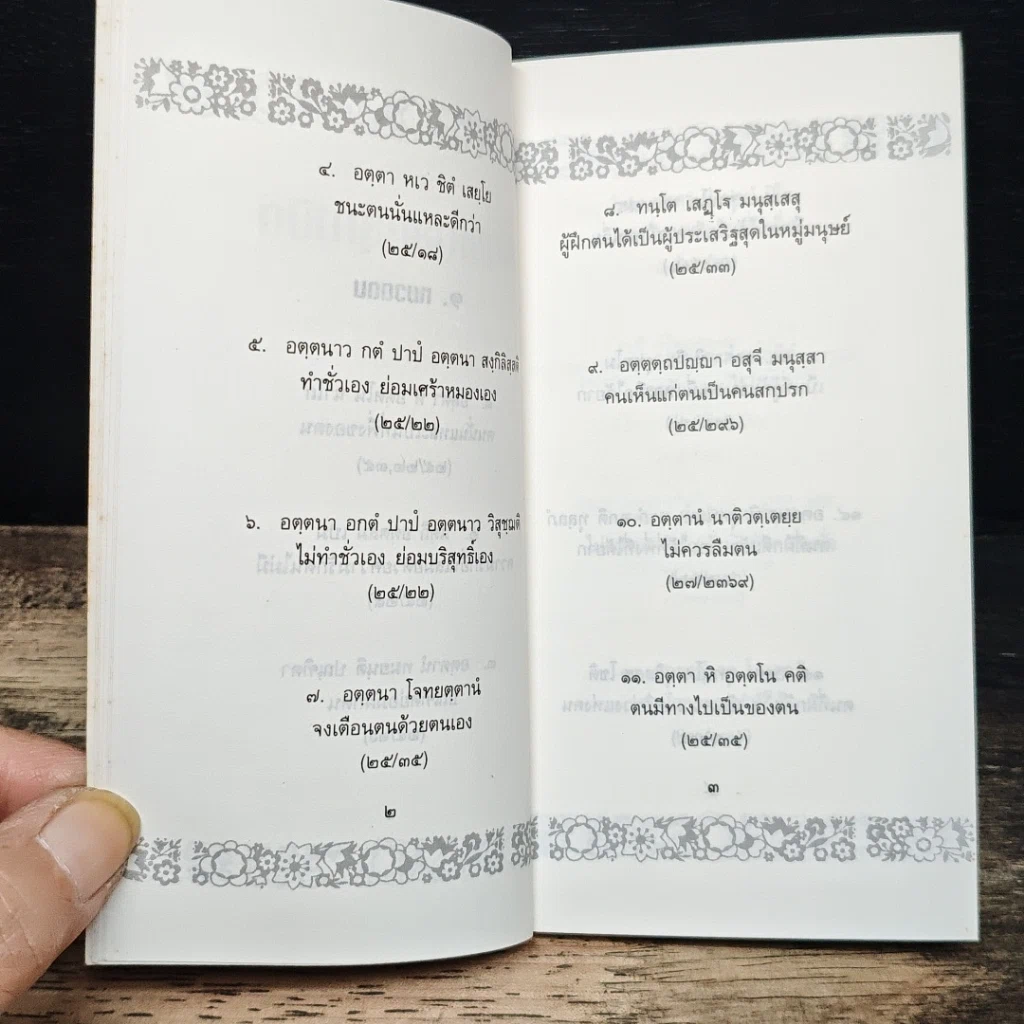 ๔. อตฺตา หเว ชิตํ เสยฺโย
ชนะตนนั่นแหละดีกว่า
(๒๕/๑๘)
๕. อตฺตนาว กตํ ปาปํ อตฺตนา สงฺกิลิสฺสติ
ทำชั่วเอง ย่อมเศร้าหมองเอง
(๒๕/๒๒)
๖. อตฺตนา อกตํ ปาปํ อตฺตนาว วิสุชฺฌติ
ไม่ทำชั่วเอง ย่อมบริสุทธิ์เอง
(๒๕/๒๒)
๗. อตฺตนา โจทยตฺตานํ
จงเตือนตนด้วยตนเอง
(๒๕/๓๕)
๒
๘. ทนฺโต เสฏฺโฐ มนุสฺเสสุ
ผู้ฝึกตนได้เป็นผู้ประเสริฐสุดในหมู่มนุษย์
(๒๕/๓๓)
๙. อตฺตตฺถปญฺญา อสุจี มนุสฺสา
คนเห็นแก่ตนเป็นคนสกปรก
(๒๕/๒๙๖)
๑๐. อตฺตานํ นาติวตฺเตยฺย
ไม่ควรลืมตน
(๒๗/๒๓๖๙)
๑๑. อตฺตา หิ อตฺตโน คติ
ตนมีทางไปเป็นของตน
(๒๕/๓๕)
๓